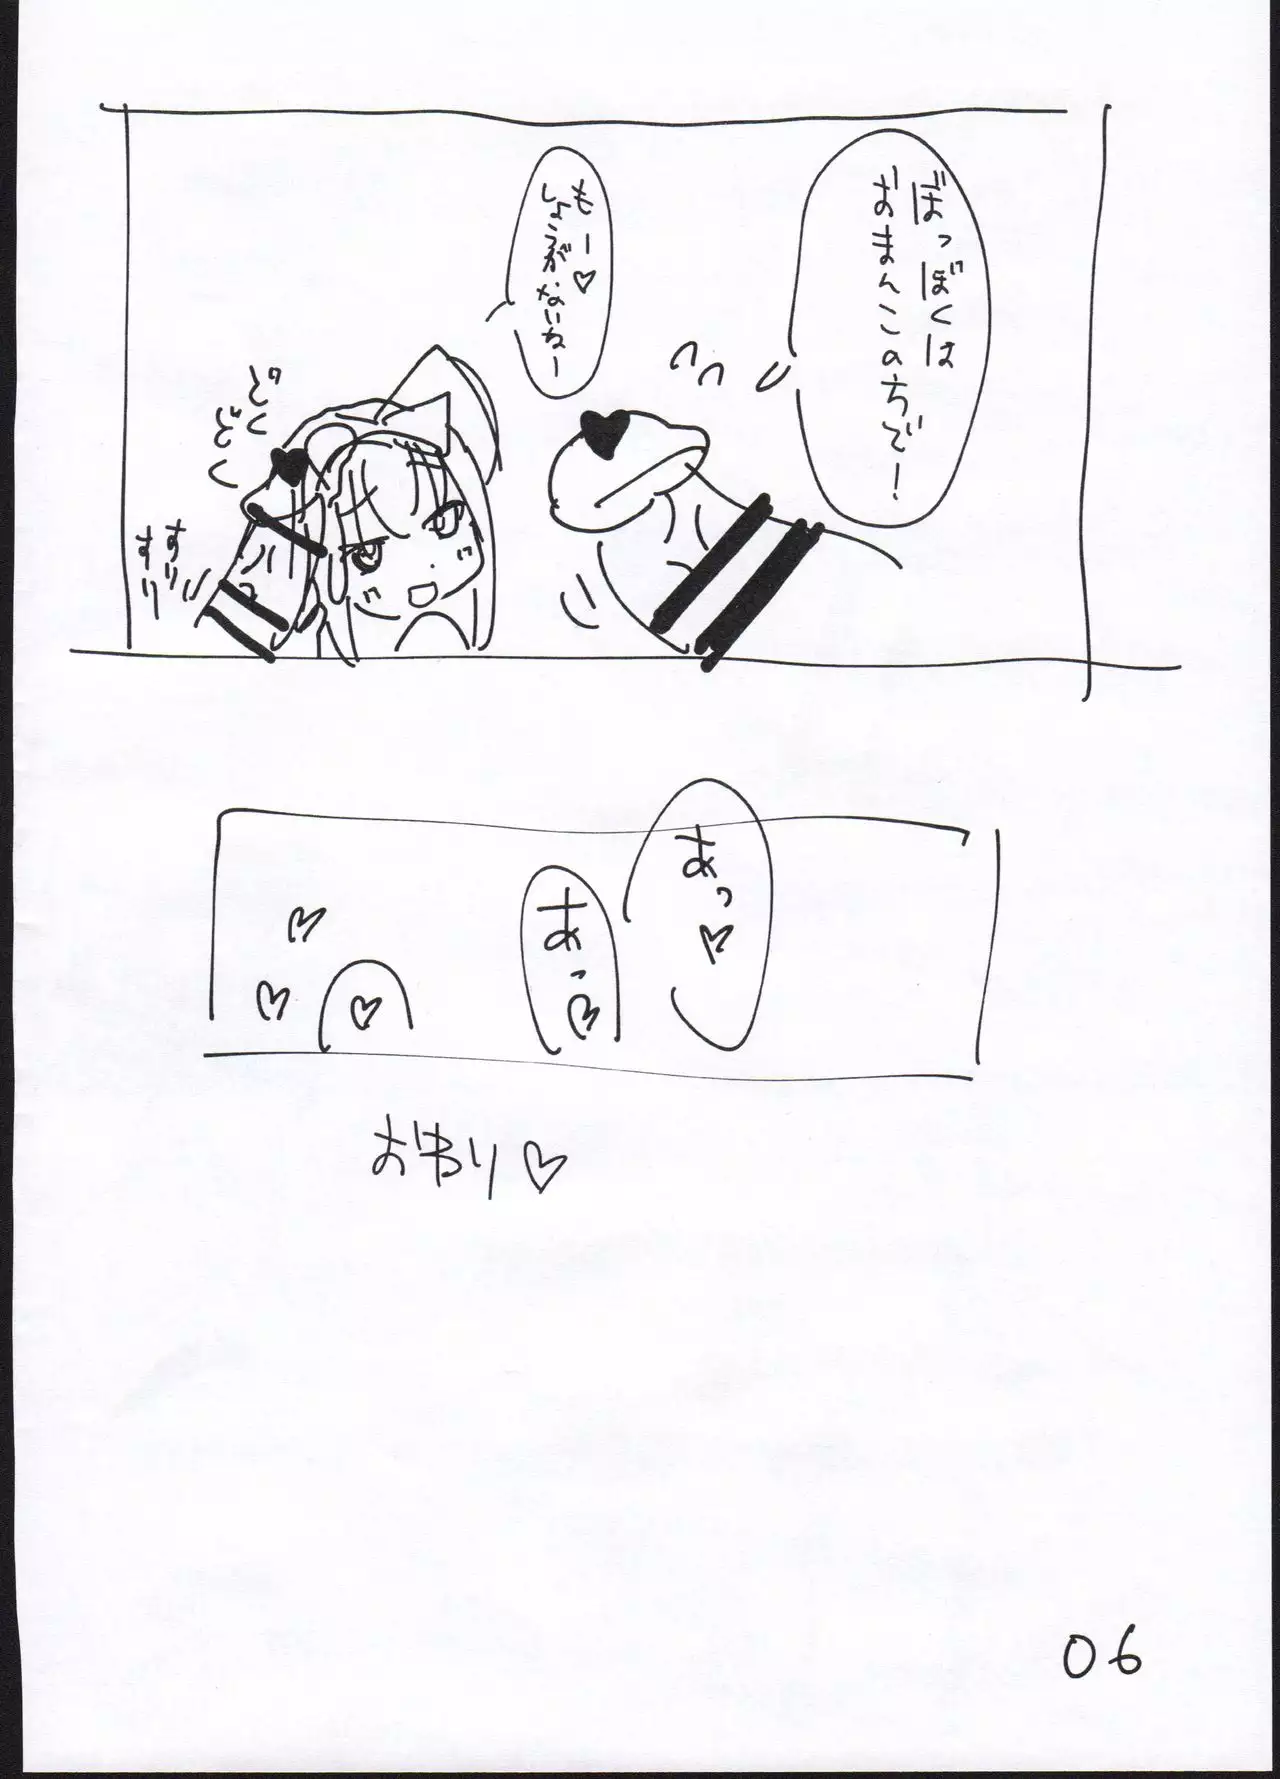 ぼっぼくは
おまんこのちで!
もー♡
しょうがないねー
どく
どく
すり
すり
あっ♡
あっ♡
おわり♡
06